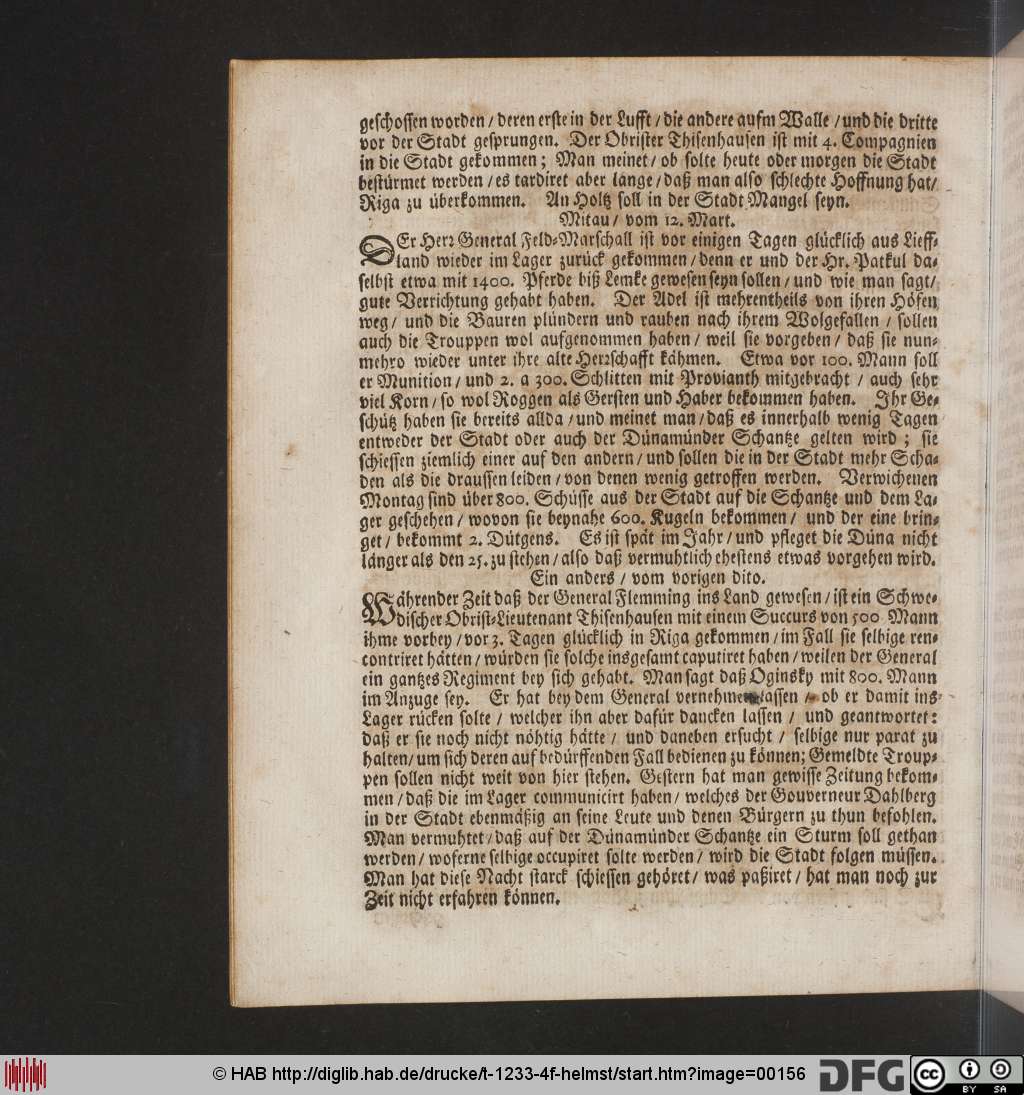 geschossen worden / deren erste in der Lufft / die andere aufm Walle / und die dritte
vor der Stadt gesprungen. Der Obrister Thisenhausen ist mit 4. Compagnien
in die Stadt gekommen; Man meinet / ob solte heute oder morgen die Stadt
bestürmet werden / es tardiret aber lange / daß man also schlechte Hoffnung hat /
Riga zu überkommen. An Holtz soll in der Stadt Mangel seyn.
Mitau / vom 12. Mart.
DEr Herr General Feld-Marschall ist vor einigen Tagen glücklich aus Lieff-
land wieder im Lager zurück gekommen / denn er und der Hr. Patkul da-
selbst etwa mit 1400. Pferde biß Lemke gewesen seyn sollen / und wie man sagt /
gute Verrichtung gehabt haben. Der Adel ist mehrentheils von ihren Höfen
weg / und die Bauren plündern und rauben nach ihrem Wolgefallen / sollen
auch die Trouppen wol aufgenommen haben / weil sie vorgeben / daß sie nun-
mehro wieder unter ihre alte Herrschafft kähmen. Etwa vor 100. Mann soll
er Munition / und 2. a 300. Schlitten mit Provianth mitgebracht / auch sehr
viel Korn / so wol Roggen als Gersten und Haber bekommen haben. Ihr Ge-
schütz haben sie bereits allda / und meinet man / daß es innerhalb wenig Tagen
entweder der Stadt oder auch der Dünamünder Schantze gelten wird ; sie
schiessen ziemlich einer auf den andern / und sollen die in der Stadt mehr Scha-
den als die draussen leiden / von denen wenig getroffen werden. Verwichenen
Montag sind über 800. Schüsse aus der Stadt auf die Schantze und dem La-
ger geschehen / wovon sie beynahe 600. Kugeln bekommen / und der eine brin-
get / bekommt 2. Dütgens. Es ist spät im Jahr / und pfleget die Düna nicht
länger als den 25. zu stehen / also daß vermuhtlich ehestens etwas vorgehen wird.
Ein anders / vom vorigen dito.
Währender Zeit daß der General Flemming ins Land gewesen / ist ein Schwe-
discher Obrist-Lieutenant Thisenhausen mit einem Succurs von 500 Mann
ihme vorbey / vor 3. Tagen glücklich in Riga gekommen / im Fall sie selbige ren-
contriret hätten / würden sie solche insgesamt caputiret haben / weilen der General
ein gantzes Regiment bey sich gehabt. Man sagt daß Oginsky mit 800. Mann
im Anzuge sey. Er hat bey dem General vernehmen lassen / ob er damit ins
Lager rücken solte / welcher ihn aber dafür dancken lassen / und geantwortet:
daß er sie noch nicht nöhtig hätte / und daneben ersucht / selbige nur parat zu
halten / um sich deren auf bedürffenden Fall bedienen zu können; Gemeldte Troup-
pen sollen nicht weit von hier stehen. Gestern hat man gewisse Zeitung bekom-
men / daß die im Lager communicirt haben / welches der Gouverneur Dahlberg
in der Stadt ebenmäßig an seine Leute und denen Bürgern zu thun befohlen.
Man vermuhtet / daß auf der Dünamünder Schantze ein Sturm soll gethan
werden / woferne selbige occupiret solte werden / wird die Stadt folgen müssen.
Man hat diese Nacht starck schiessen gehöret / was paßiret / hat man noch zur
Zeit nicht erfahren können.
© HAB http://diglib.hab.de/drucke/t-1233-4f-helmst/start.htm?image=00156
DFG
cc BY SA